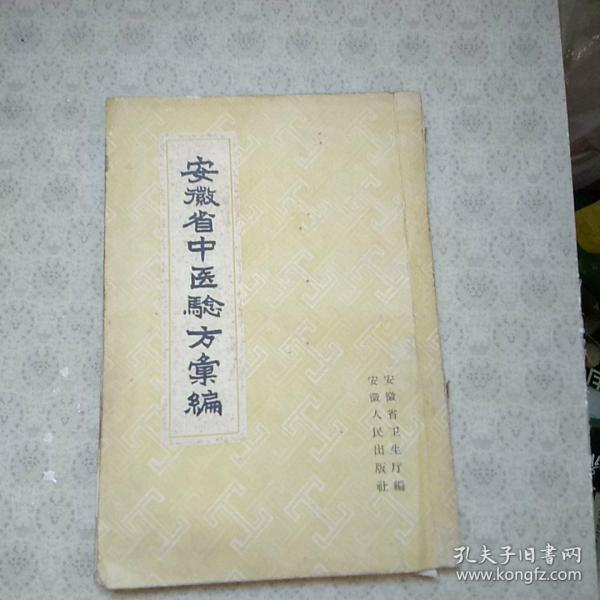 安徽省中医騐方彙編
安徽省卫生厅編
安徽人民出版社
孔夫子旧书网
www.kongfz.com